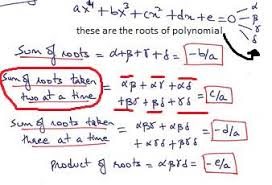 ax⁴ + bx³ + cx² + dx + e = 0 α β γ δ
these are the roots of polynomial
Sum of roots = α+β+γ+δ = -b/a
Sum of roots taken two at a time = αβ + αγ + αδ +βγ + βδ + γδ = c/a
Sum of roots taken three at a time = αβγ + αβδ + αγδ + βγδ = -d/a
product of roots = αβγδ = -e/a